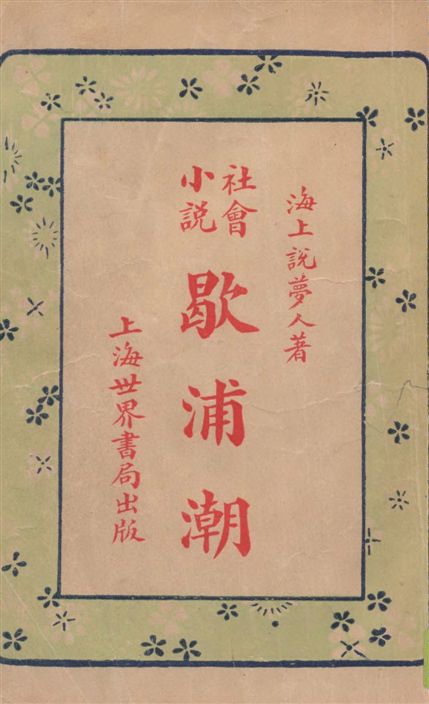 海上說夢人著
社會
小説
歇浦潮
上海世界書局出版